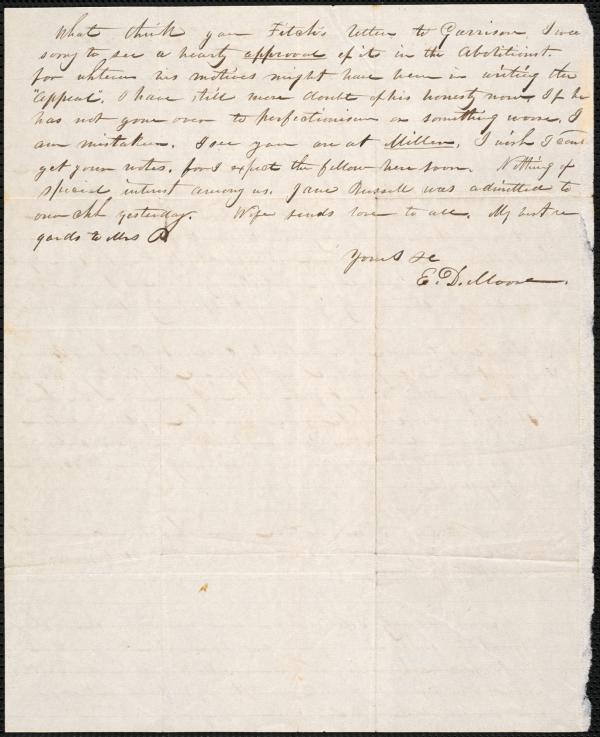 What think you Fitch's letter to Garrison, I was
sorry to see a hearty approval of it in the Abolitionist.
for whatever his motives might have been in writing the
"Appeal". I have still more doubt of his honesty now. If he
has not gone over to perfectionism or something worse, I
am mistaken. I see you are at Miller. I wish I could
get your notes. for I expect the fellow here soon. Nothing of
special interest among us. Jane Russell was admitted to
our chh yesterday. Wife sends love to all. My best re
gards to Mrs P
Yours &c
E. D. Moore.